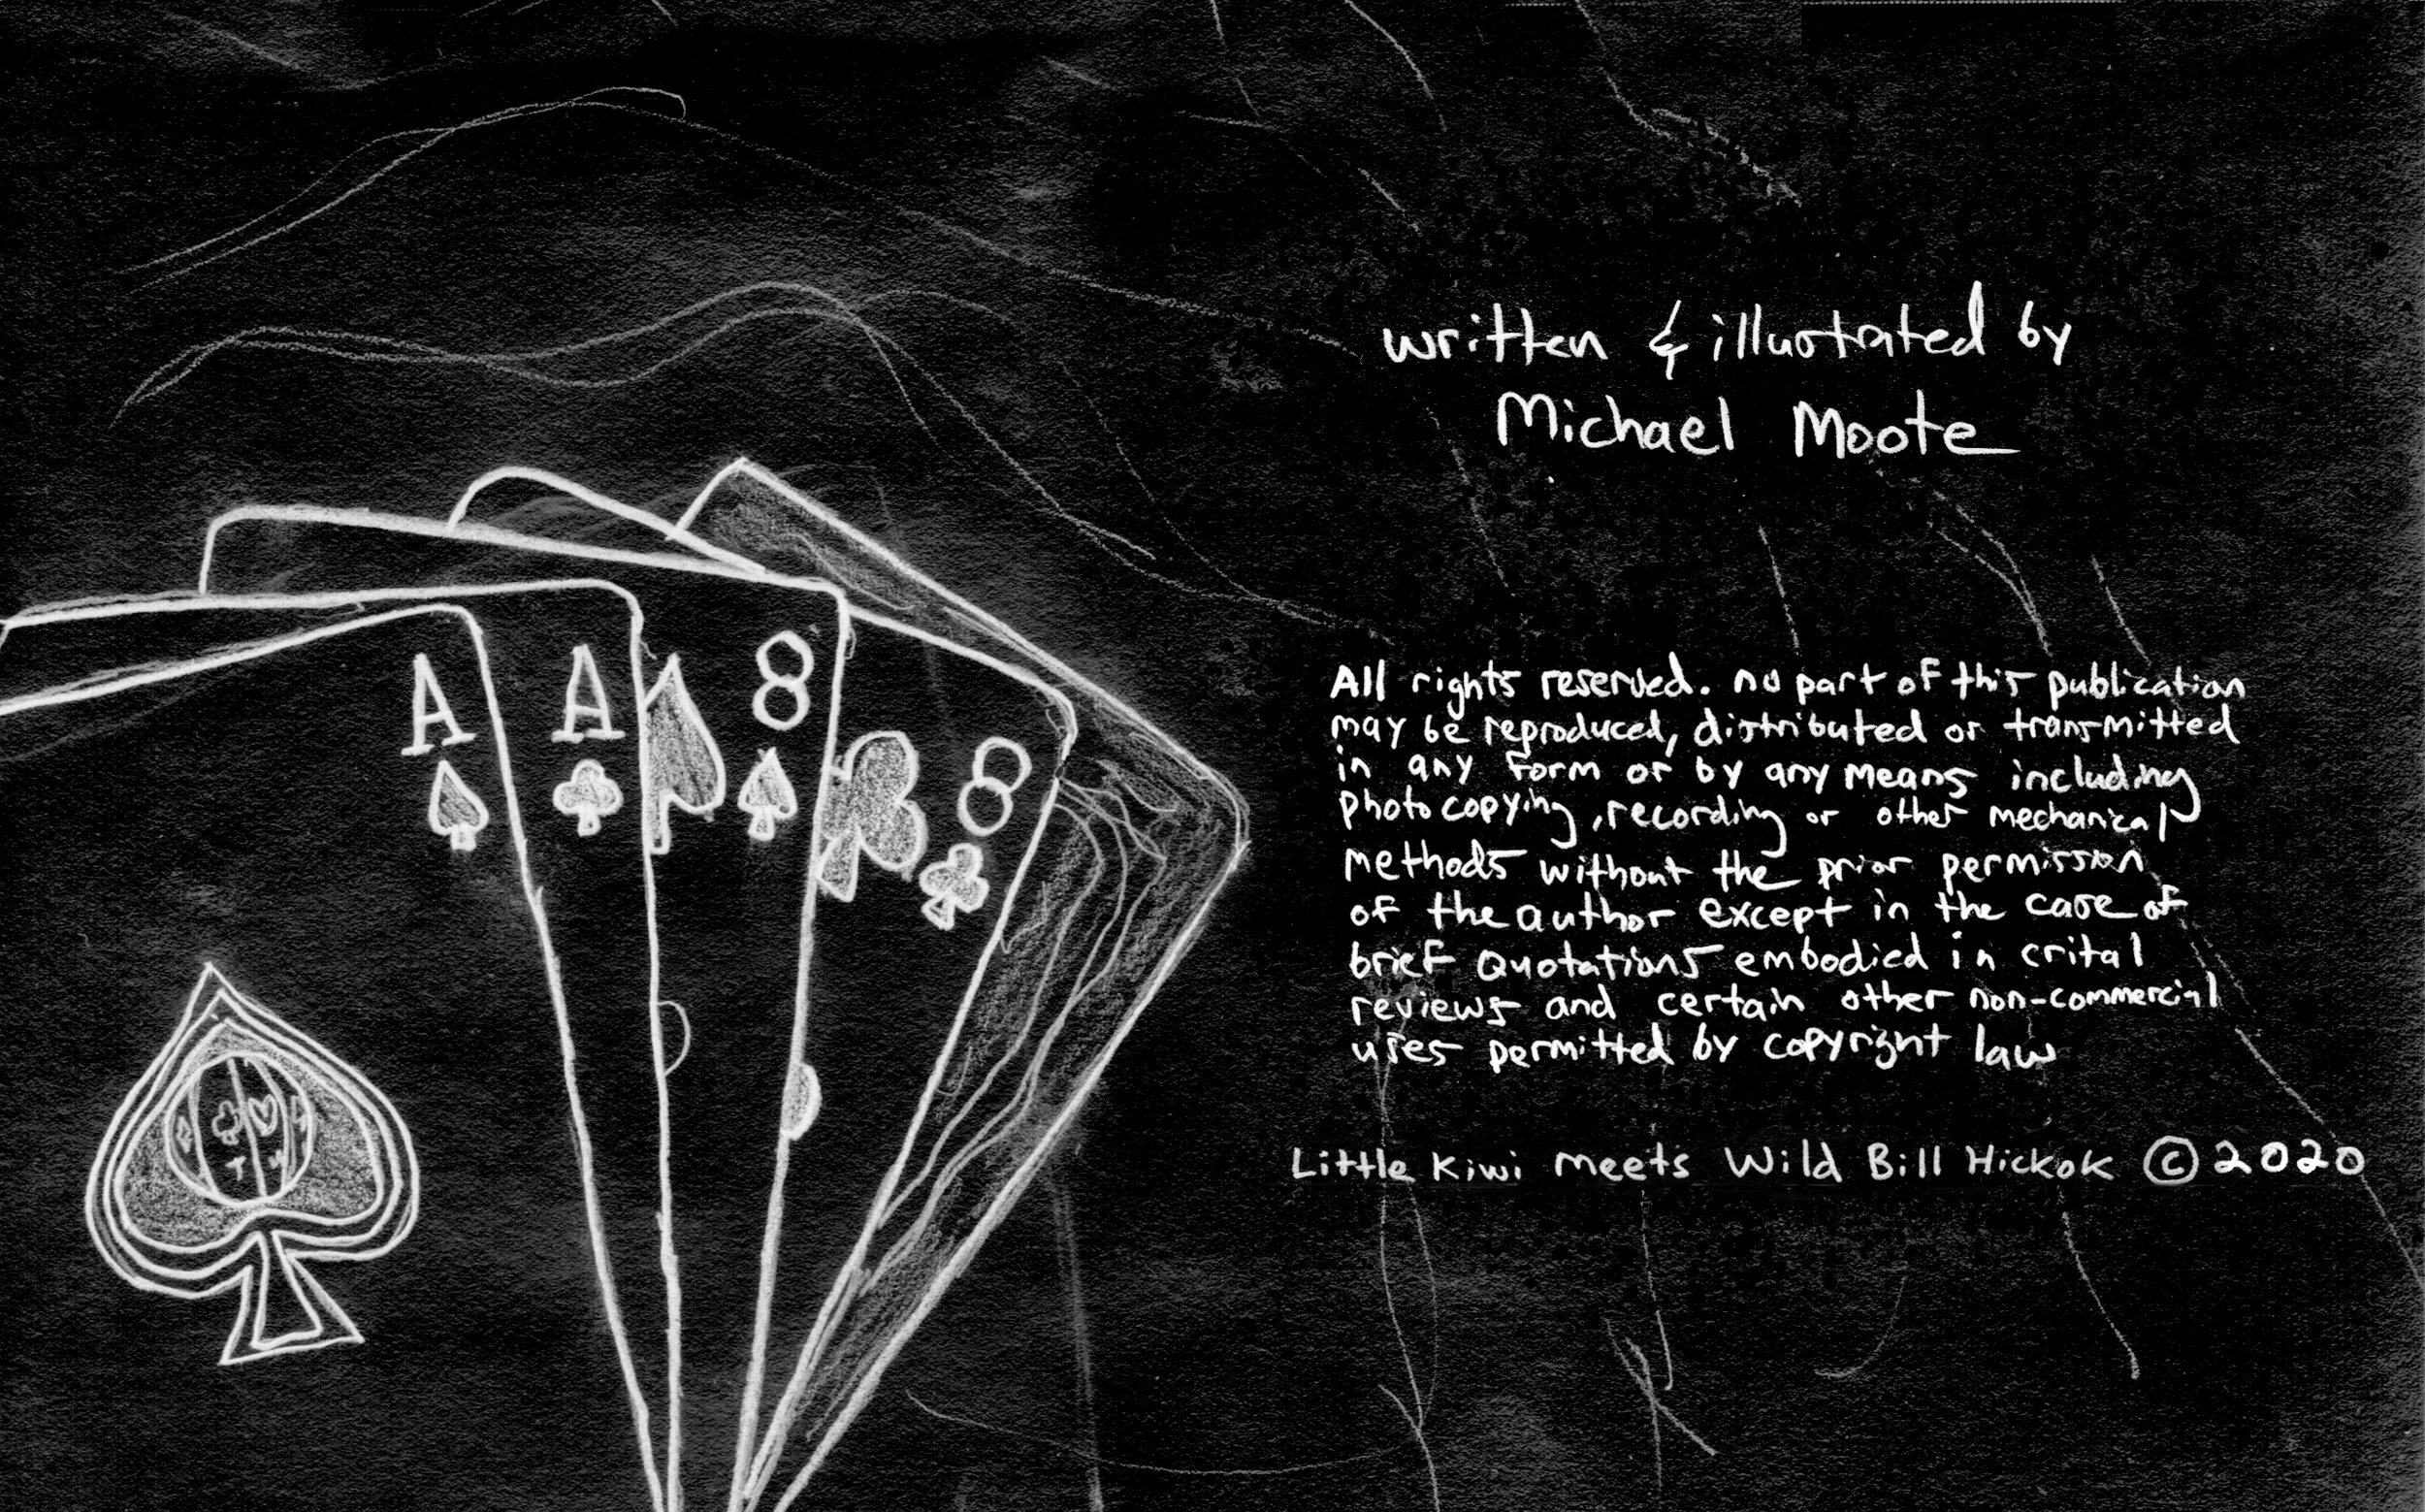 A
A
8
8
written & illustrated by
Michael Moote
All rights reserved. no part of this publication
may be reproduced, distributed or transmitted
in any form or by any means including
photocopying, recording or other mechanical
methods without the prior permission
of the author except in the case of
brief Quotations embodied in crital
reviews and certain other non-commercial
uses permitted by copyright law
Little Kiwi meets Wild Bill Hickok © 2020